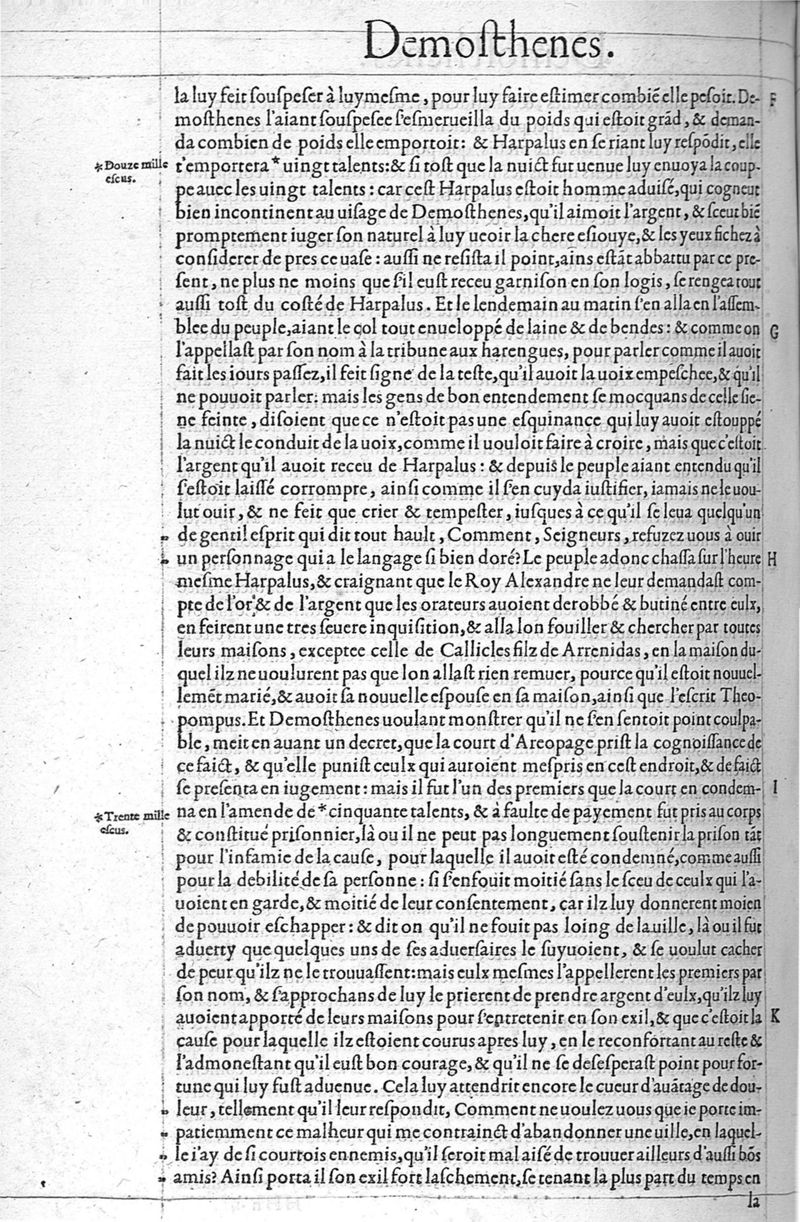 Demoſthenes.
la luy feit ſouſpeſer à luymeſme, pour luy faire eſtimer combiē elle peſoit. De- F
moſthenes l'aiant ſouſpeſee s'eſmerueilla du poids qui eſtoit grād, & deman-
da combien de poids elle emportoit: & Harpalus en ſe riant luy reſpōdit, elle
*Douze mille eſcus.
t'emportera * uingt talents: & ſi toſt que la nuict fut uenue luy enuoya la coup-
pe auec les uingt talents: car ceſt Harpalus eſtoit homme aduiſé, qui cogneut
bien incontinent au uiſage de Demoſthenes, qu'il aimoit l'argent, & ſceut biē
promptement iuger ſon naturel à luy ueoir la chere eſiouye, & les yeux fichez à
conſiderer de pres ce uaſe: auſſi ne reſiſta il point, ains eſtāt abbattu par ce pre-
ſent, ne plus ne moins que s'il euſt receu garniſon en ſon logis, ſe rengea tout
auſſi toſt du coſté de Harpalus. Et le lendemain au matin s'en alla en l'aſſem-
blee du peuple, aiant le col tout enueloppé de laine & de bendes: & comme on G
l'appellaſt par ſon nom à la tribune aux harengues, pour parler comme il auoit
fait les iours paſſez, il feit ſigne de la teſte, qu'il auoit la uoix empeſchee, & qu'il
ne pouuoit parler: mais les gens de bon entendement ſe mocquans de celle ſie-
ne feinte, diſoient que ce n'eſtoit pas une eſquinance qui luy auoit eſtouppé
la nuict le conduit de la uoix, comme il uouloit faire à croire, mais que c'eſtoit
l'argent qu'il auoit receu de Harpalus: & depuis le peuple aiant entendu qu'il
s'eſtoit laiſſé corrompre, ainſi comme il s'en cuyda iuſtifier, iamais ne le uou-
lut ouir, & ne feit que crier & tempeſter, iuſques à ce qu'il ſe leua quelqu'un
" de gentil eſprit qui dit tout hault, Comment, Seigneurs, refuzez uous à ouir
" un perſonnage qui a le langage ſi bien doré? Le peuple adonc chaſſa ſur l'heure H
meſme Harpalus, & craignant que le Roy Alexandre ne leur demandaſt com-
pte de l'or & de l'argent que les orateurs auoient derobbé & butiné entre eulx,
en feirent une tres ſeuere inquiſition, & alla lon fouiller & chercher par toutes
leurs maiſons, exceptee celle de Callicles filz de Arrenidas, en la maiſon du-
quel ilz ne uoulurent pas que lon allaſt rien remuer, pource qu'il eſtoit nouuel-
lemēt marié, & auoit ſa nouuelle eſpouſe en ſa maiſon, ainſi que l'eſcrit Theo-
pompus. Et Demoſthenes uoulant monſtrer qu'il ne s'en ſentoit point coulpa-
ble, meit en auant un decret, que la court d'Areopage priſt la cognoiſſance de
ce faict, & qu'elle puniſt ceulx qui auroient meſpris en ceſt endroit, & de faict
ſe preſenta en iugement: mais il fut l'un des premiers que la court en condem- I
*Trente mille eſcus.
na en l'amende de * cinquante talents, & à faulte de payement fut pris au corps
& conſtitué priſonnier, là ou il ne peut pas longuement ſouſtenir la priſon tāt
pour l'infamie de la cauſe, pour laquelle il auoit eſté condemné, comme auſſi
pour la debilité de ſa perſonne: ſi s'enfouit moitié ſans le ſceu de ceulx qui l'a-
uoient en garde, & moitié de leur conſentement, car ilz luy donnerent moien
de pouuoir eſchapper: & dit on qu'il ne fouit pas loing de la uille, là ou il fut
aduerty que quelques uns de ſes aduerſaires le ſuyuoient, & ſe uoulut cacher
de peur qu'ilz ne le trouuaſſent: mais eulx meſmes l'appellerent les premiers par
ſon nom, & s'approchans de luy le prierent de prendre argent d'eulx, qu'ilz luy
auoient apporté de leurs maiſons pour s'entretenir en ſon exil, & que c'eſtoit la K
cauſe pour laquelle ilz eſtoient courus apres luy, en le reconfortant au reſte &
l'admoneſtant qu'il euſt bon courage, & qu'il ne ſe deſeſperaſt point pour for-
tune qui luy fuſt aduenue. Cela luy attendrit encore le cueur d'auātage de dou-
" leur, tellement qu'il leur reſpondit, Comment ne uoulez uous que ie porte im-
" patiemment ce malheur qui me contrainct d'abandonner une uille, en laquel-
" le i'ay de ſi courtois ennemis, qu'il ſeroit mal aiſé de trouuer ailleurs d'auſſi bōs
" amis? Ainſi porta il ſon exil fort laſchement, ſe tenant la plus part du temps en
la